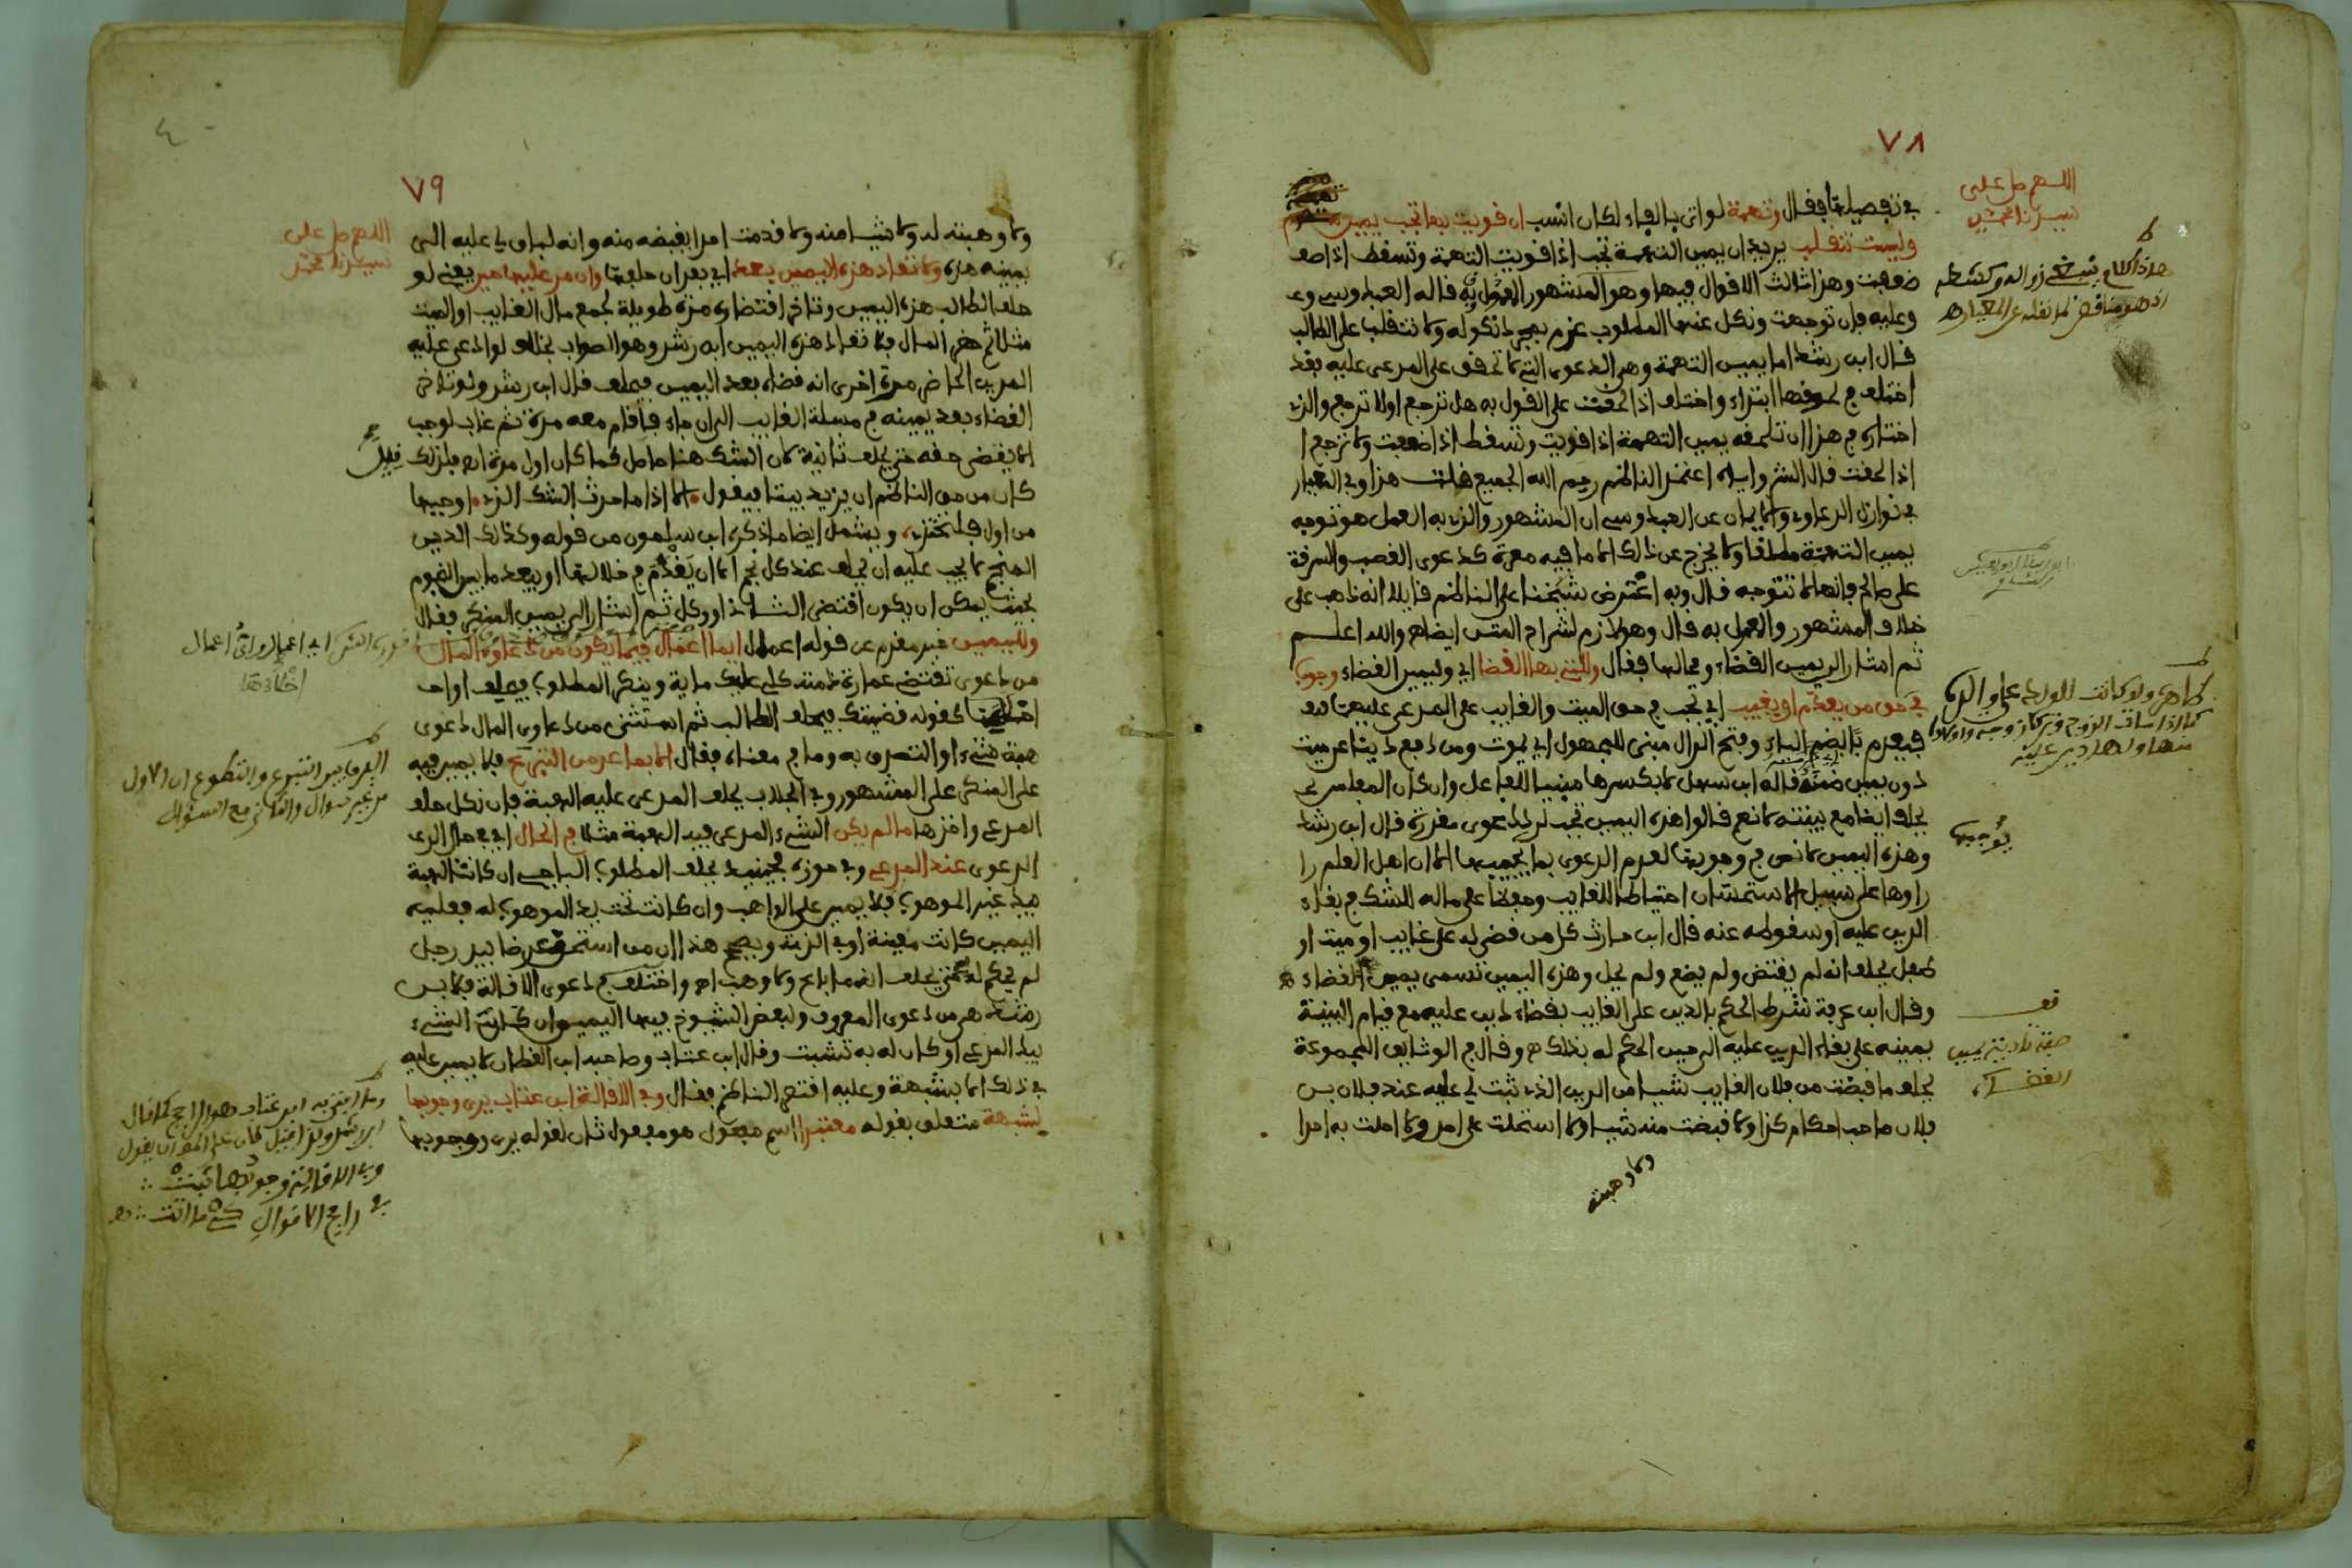 ٧٨
اللهم صل على
سيدنا محمد
في تفصيلها فقال وتهمة لو اتى بالفاء لكان انسب ان قويت بها تجب يمين
وليست تنقلب يريد ان يمين التهمة تجب اذا قويت التهمة وتسقط اذا
ضعفت وهذا ثالث الاقوال فيها وهو المشهور المعمول به قاله العبدوسي
وعليه فان توجهت ونكل عنها المطلوب غرم بمجرد نكوله ولا تنقلب على الطالب
قال ابن رشد اما يمين التهمة وهي الدعوى التي لا تحقق على المدعى عليه فقد
اختلف في لحوقها ابتداء واختلف اذا لحقت على القول به هل ترجع او لا ترجع والذي
اختاره في هذا ان تلحقه يمين التهمة اذا قويت وتسقط اذا ضعفت ولا ترجع
اذا لحقت قال الشارح واياه اعتمد الناظم رحم الله الجميع قلت هذا وفي المعيار
في نوازل الدعاوي والايمان عن العبدوسي ان المشهور والذي به العمل هو توجه
يمين التهمة مطلقا ولا يخرج عن ذلك الا ما فيه معرة كدعوى الغصب والسرقة
على صالح فانها لا تتوجه قال وبه اعترض شيخنا على الناظم قايلا انه ذاهب على
خلاف المشهور والمعمول به قال وهو لازم لشراح المتن ايضا ه والله اعلم
ثم اشار الى يمين القضاء ومحالها فقال وللتي بها القضا اي وليمين القضاء وجوب
في حق من يعدم او يغيب اي تجب في حق الميت والغايب على المدعي عليهما
فيعدم بالضم الياء وفتح الدال مبني للمجهول اي يموت ومن دفع دينا عن ميت
دون يمين ضمنه قاله ابن سهل لا بكسرها مبنيا للفاعل وان كان المفلس
يحلف ايضا مع بينته لا نعم قالوا هذه اليمين تجب لرد دعوى مقدرة قال ابن رشد
وهذه اليمين لا نص في وجوبها لعدم الدعوى بما يوجبها الا ان اهل العلم را
راوها على سبيل الاستحسان احتياطا للغايب وحفظا على ماله للشك في بقاء
الدين عليه او سقوطه عنه قال ابن حارث كل من قضي له على غايب او ميت او
طفل يحلف انه لم يقتض ولم يضع ولم يحل وهذه اليمين تسمى يمين القضاء ه
وقال ابن عرفة شرط الحكم بالدين على الغايب بقضاء دين عليه مع قيام البينة
يمينه على بقاء الدين عليه الى حين الحكم له بذلك ه وقال في الوثايق المجموعة
يحلف ما قبضت من فلان الغايب شيا من الدين الذي ثبت لي عليه عند فلان بن
فلان صاحب احكام كذا ولا قبضت منه شيا ولا استحلت على احد ولا احلت به احدا
ولا وهبته
يوجبها
صفة تادية يمين
القضاء
٧٩
اللهم صل على
سيدنا محمد
ولا وهبته له ولا شيا منه ولا قدمت احدا بقبضه منه وانه لباق لي عليه الى
يميني هذه ولا تعاد هذه اليمين بعد اي بعد ان حلفها وان مر عليها حين يعني لو
حلف الطالب هذه اليمين وتاخر اقتضاؤه مدة طويلة لجمع مال الغايب او الميت
مثلا ثم حضر المال فلا تعاد هذه اليمين ابن رشد وهو الصواب بخلاف لو ادعى عليه
المدين الحاضر مرة اخرى انه قضاه بعد اليمين فيحلف قال ابن رشد ولو تاخر
القضاء بعد يمينه في مسئلة الغايب الى ان جاء فاقام معه مدة ثم غاب لوجب
الا يقضى حقه حتى يحلف ثانية لان الشك هنا حاصل كما كان اول مرة ه فلذلك قيل
كان من حق الناظم ان يزيد بيتا فيقول الا اذا ما حدث الشك الذي اوجبها
من اول فلتحتذي ويشمل ايضا ما ذكره ابن سلمون من قوله وكذلك الدين
المنجم لا يجب عليه ان يحلف عند كل نجم الا ان يقدم في خلالها او يبعد ما بين النجوم
بحيث يمكن ان يكون اقتضى الشاذ او وكل ثم اشار الى يمين المنكر فقال
ولليمين خبر مقدم عن قوله اعمال ايما اعمال فيما يكون من دعاوي المال
من دعوى تقتضي عمارة ذمته كلي عليك ماية وينكر المطلوب فيحلف او
كقوله قضيتك فيحلف الطالب ثم استثنى من دعاوى المال دعوى
هبة شيء او التصدق به وما في معناه فقال الا بما عد من التبرع فلا يمين فيه
على المنكر على المشهور وفي الجلاب يحلف المدعى عليه الهبة فان نكل حلف
المدعي واخذها ما لم يكن الشيء المدعى فيه الهبة مثلا في الحال اي في حال
الدعوى عند المدعي وفي حوزه فحينئذ يحلف المطلوب الباجي ان كانت الهبة
بيد غير الموهوب فلا يمين على الواهب وان كانت تحت يد الموهوب له فعليه
اليمين كانت معينة او في الذمة ويصحح هذا ان من استحق عرضا بيد رجل
لم يحكم له حتى يحلف انه ما باع ولا وهب اه واختلف في دعوى الاقالة فلابن
رشد هي من دعوى المعروف ولبعض الشيوخ فيها اليمين ان كان الشيء
بيد المدعي او كان له به تشبث وقال ابن عتاب وصاحبه ابن القطان لا يمين عليه
في ذلك الا بشبهة وعليه اقتصر الناظم فقال وفي الاقالة ابن عتاب يرى وجوبها
لشبهة متعلق بقوله معتبرا اسم مفعول هو مفعول ثان لقوله يرى ووجوبها
الفرق بين التبرع والتطوع ان الاول
من غير سوال والثاني مع السؤال